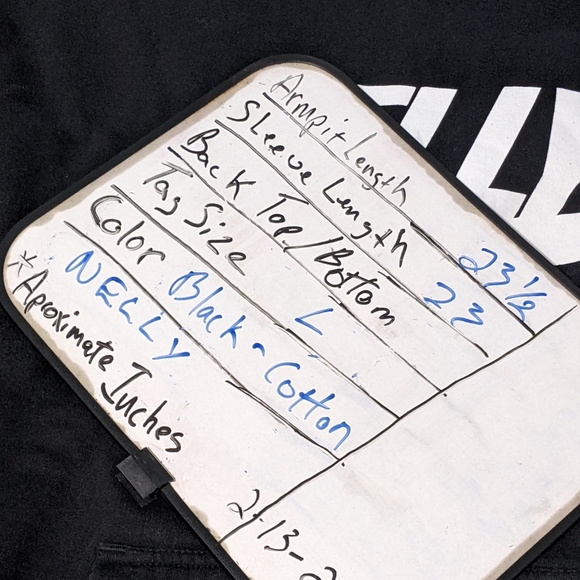 Armpit Length 23 1/2
Sleeve Length 23
Back Top/Bottom
Tag Size L
Color Black - Cotton
NELLY
*Aproximate Inches
2-13-2